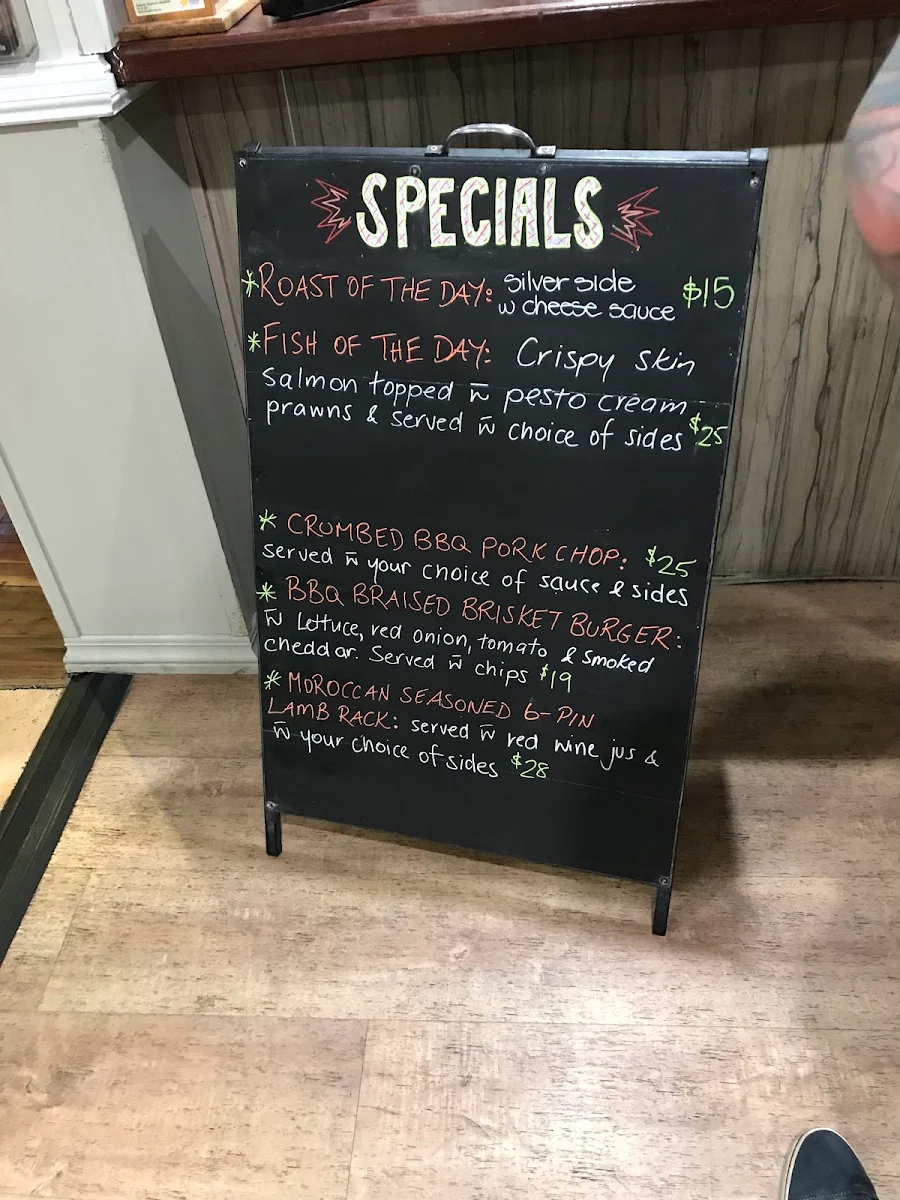 SPECIALS
*ROAST OF THE DAY: silver side $15
w cheese sauce
*FISH OF THE DAY: Crispy skin
Salmon topped w̄ pesto cream
prawns & served w̄ choice of sides $25
* CRUMBED BBQ PORK CHOP: $25
served w̄ your choice of sauce & sides
* BBQ BRAISED BRISKET BURGER:
w̄ Lettuce, red onion, tomato & smoked
cheddar. Served w̄ chips $19
* MOROCCAN SEASONED 6-PIN
LAMB RACK: served w̄ red wine jus &
w̄ your choice of sides $28